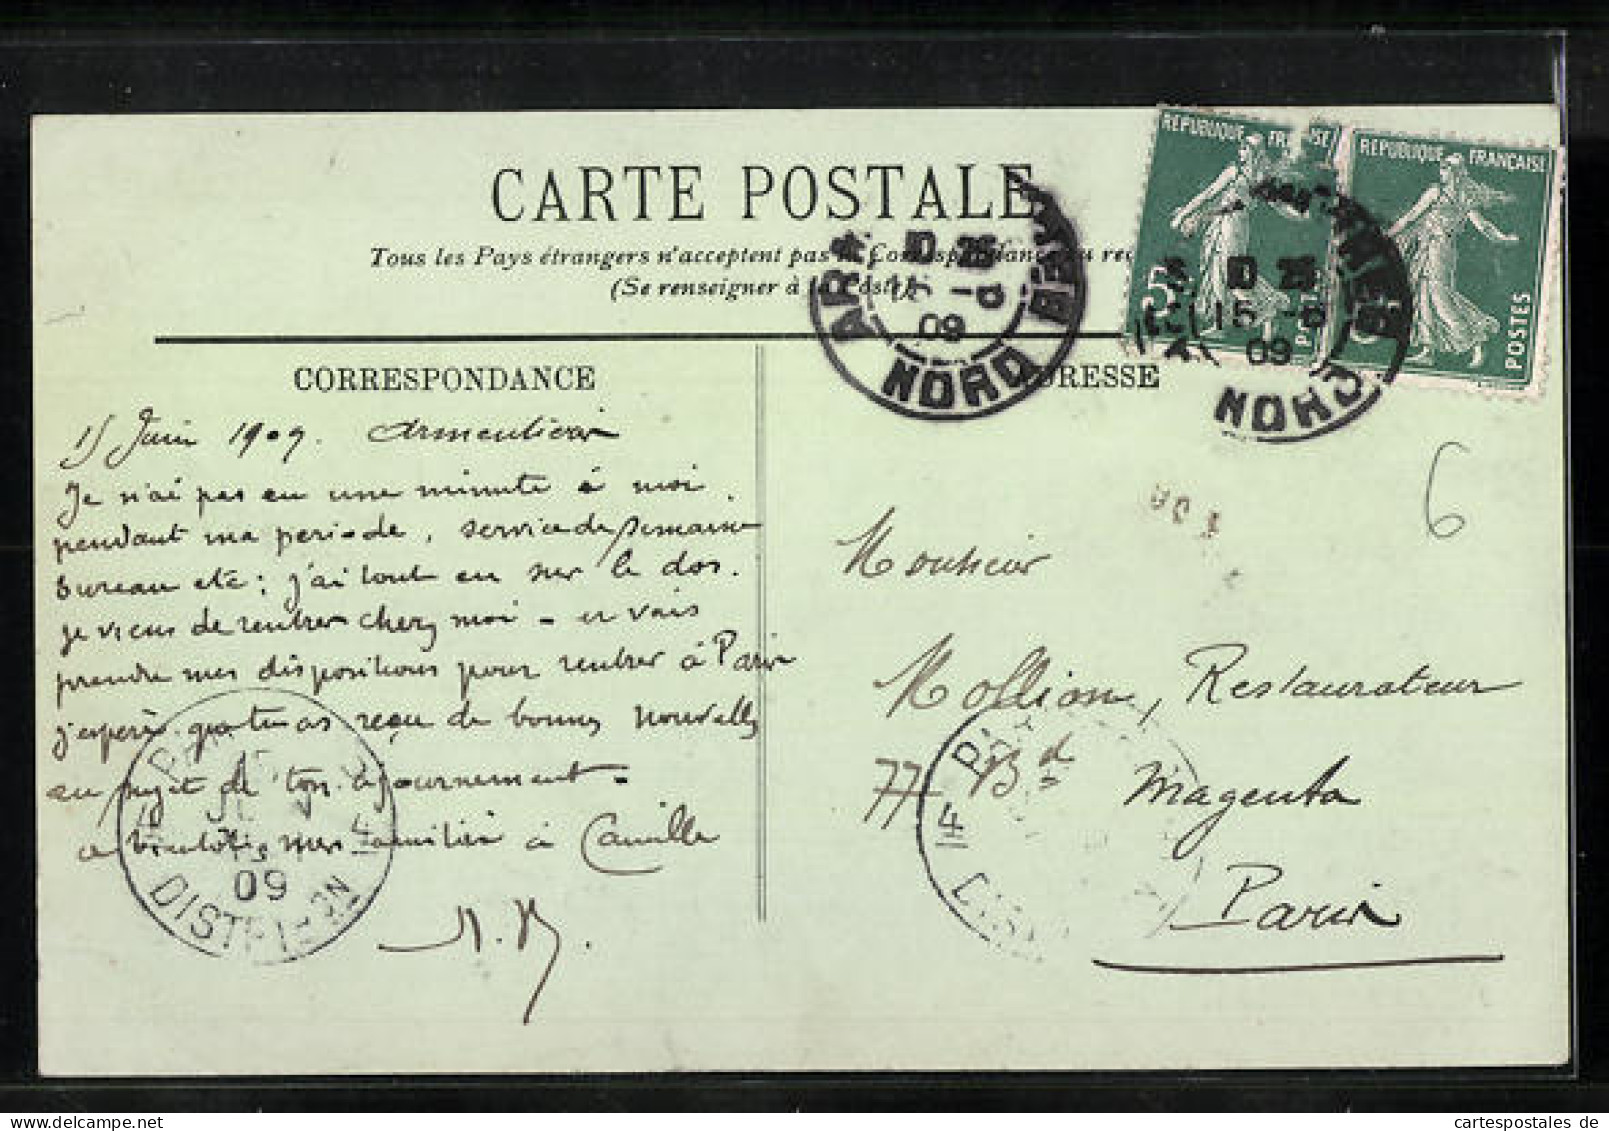 CARTE POSTALE
Tous les Pays étrangers n'acceptent pas la Correspondance au
(Se renseigner à la Poste)
RÉPUBLIQUE FRANÇAISE
5
POSTES
RÉPUBLIQUE FRANÇAISE
POSTES
10 25
15 -6
09
NORD
10 25
15 -6
09
NORD
CORRESPONDANCE
ADRESSE
15 Juin 1909. Armentières
Je n'ai pas eu une minute à moi
pendant ma periode, service de semaine
bureau etc: j'ai tout eu sur le dos.
je viens de rentrer chez moi - et vais
prendre mes dispositions pour rentrer à Paris
j'espère que tu as reçu de bonnes nouvelles
au sujet de ton ajournement -
mes amitiés à Camille
6
Monsieur
Mollion, Restaurateur
77 Bd Magenta
Paris
PARIS
4 4
09
DISTRIBON
4
cartespostales de